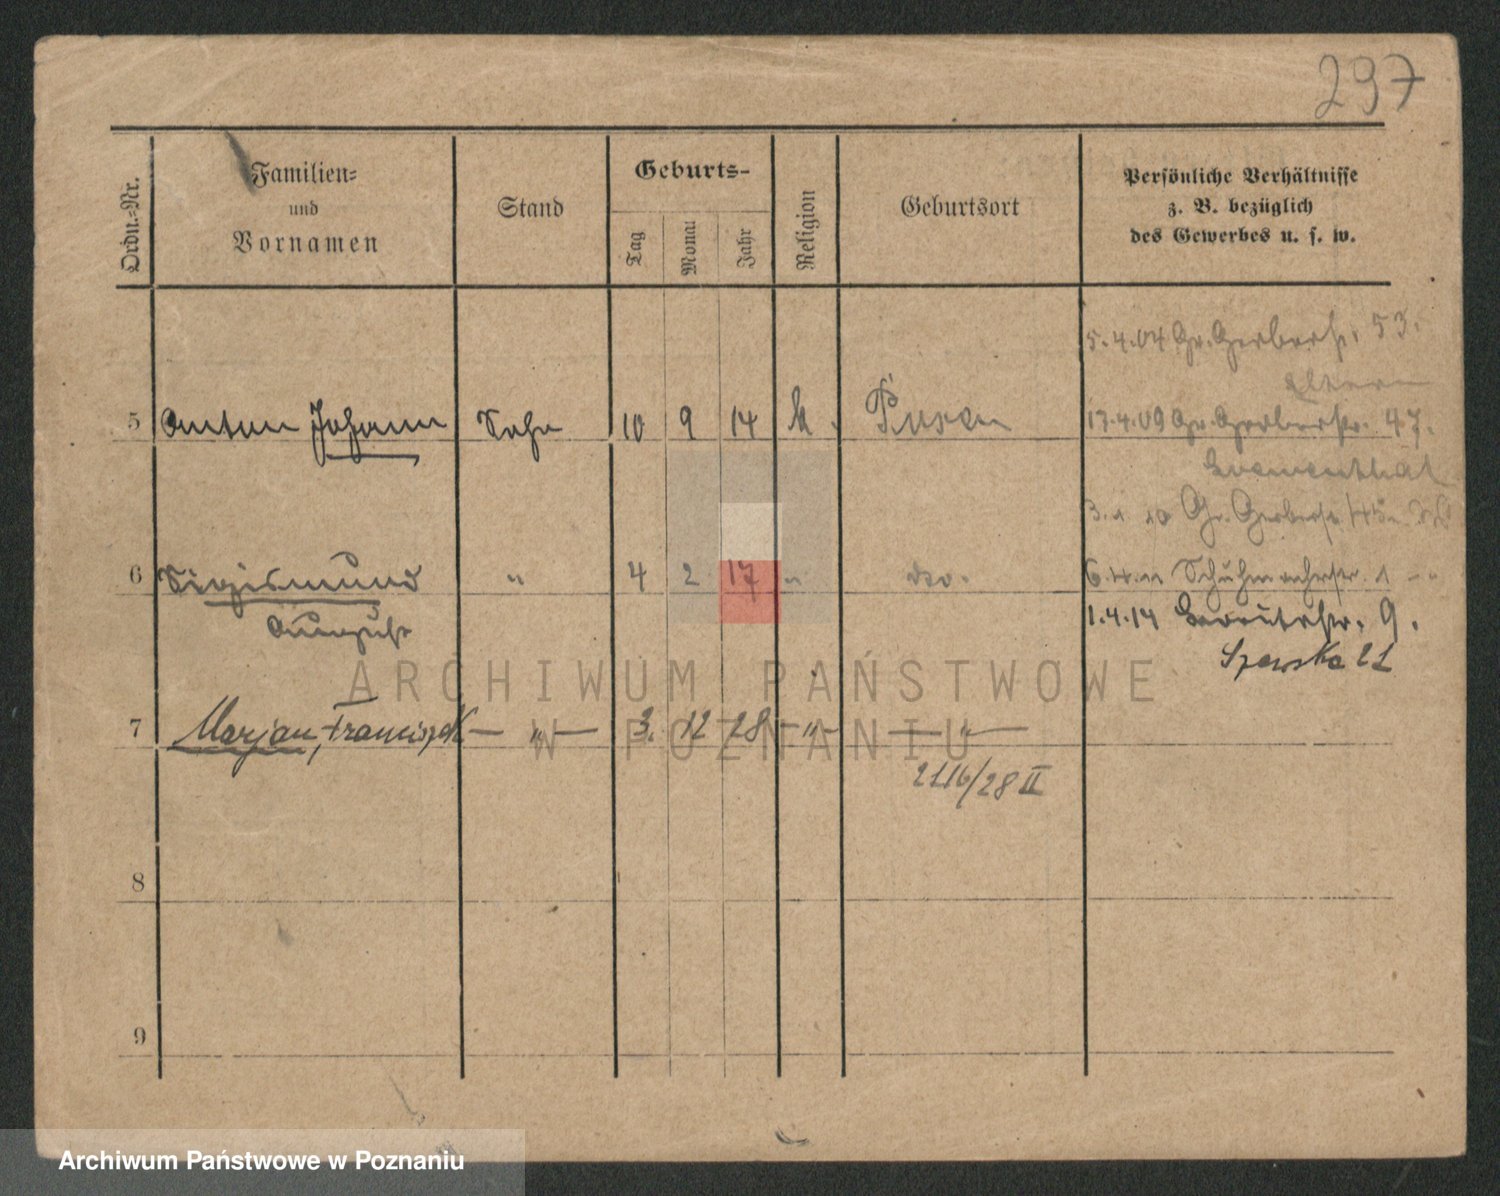 297
Ordn.-Nr.
Familien-
und
Vornamen
Stand
Geburts-
Tag
Monat
Jahr
Religion
Geburtsort
Persönliche Verhältnisse
z. B. bezüglich
des Gewerbes u. s. w.
5.4.04 Gr. Gerberstr. 53.
Eltern
5 Anton Johann Sohn 10 9 14 k. Posen
17.4.09 Gr. Gerberstr. 47.
3. 1 10 Gr. Gerberstr.
6 Sigismund " 4 2 17 " do.
August
6.4.11 Schuhmacherstr. 1
1.4.14 Breitestr. 9.
Szewska 21
7 Marjan, Franciszek — " — 3. 12 28 — " — — " —
2116/28 II
8
9
ARCHIWUM PAŃSTWOWE
W POZNANIU
Archiwum Państwowe w Poznaniu